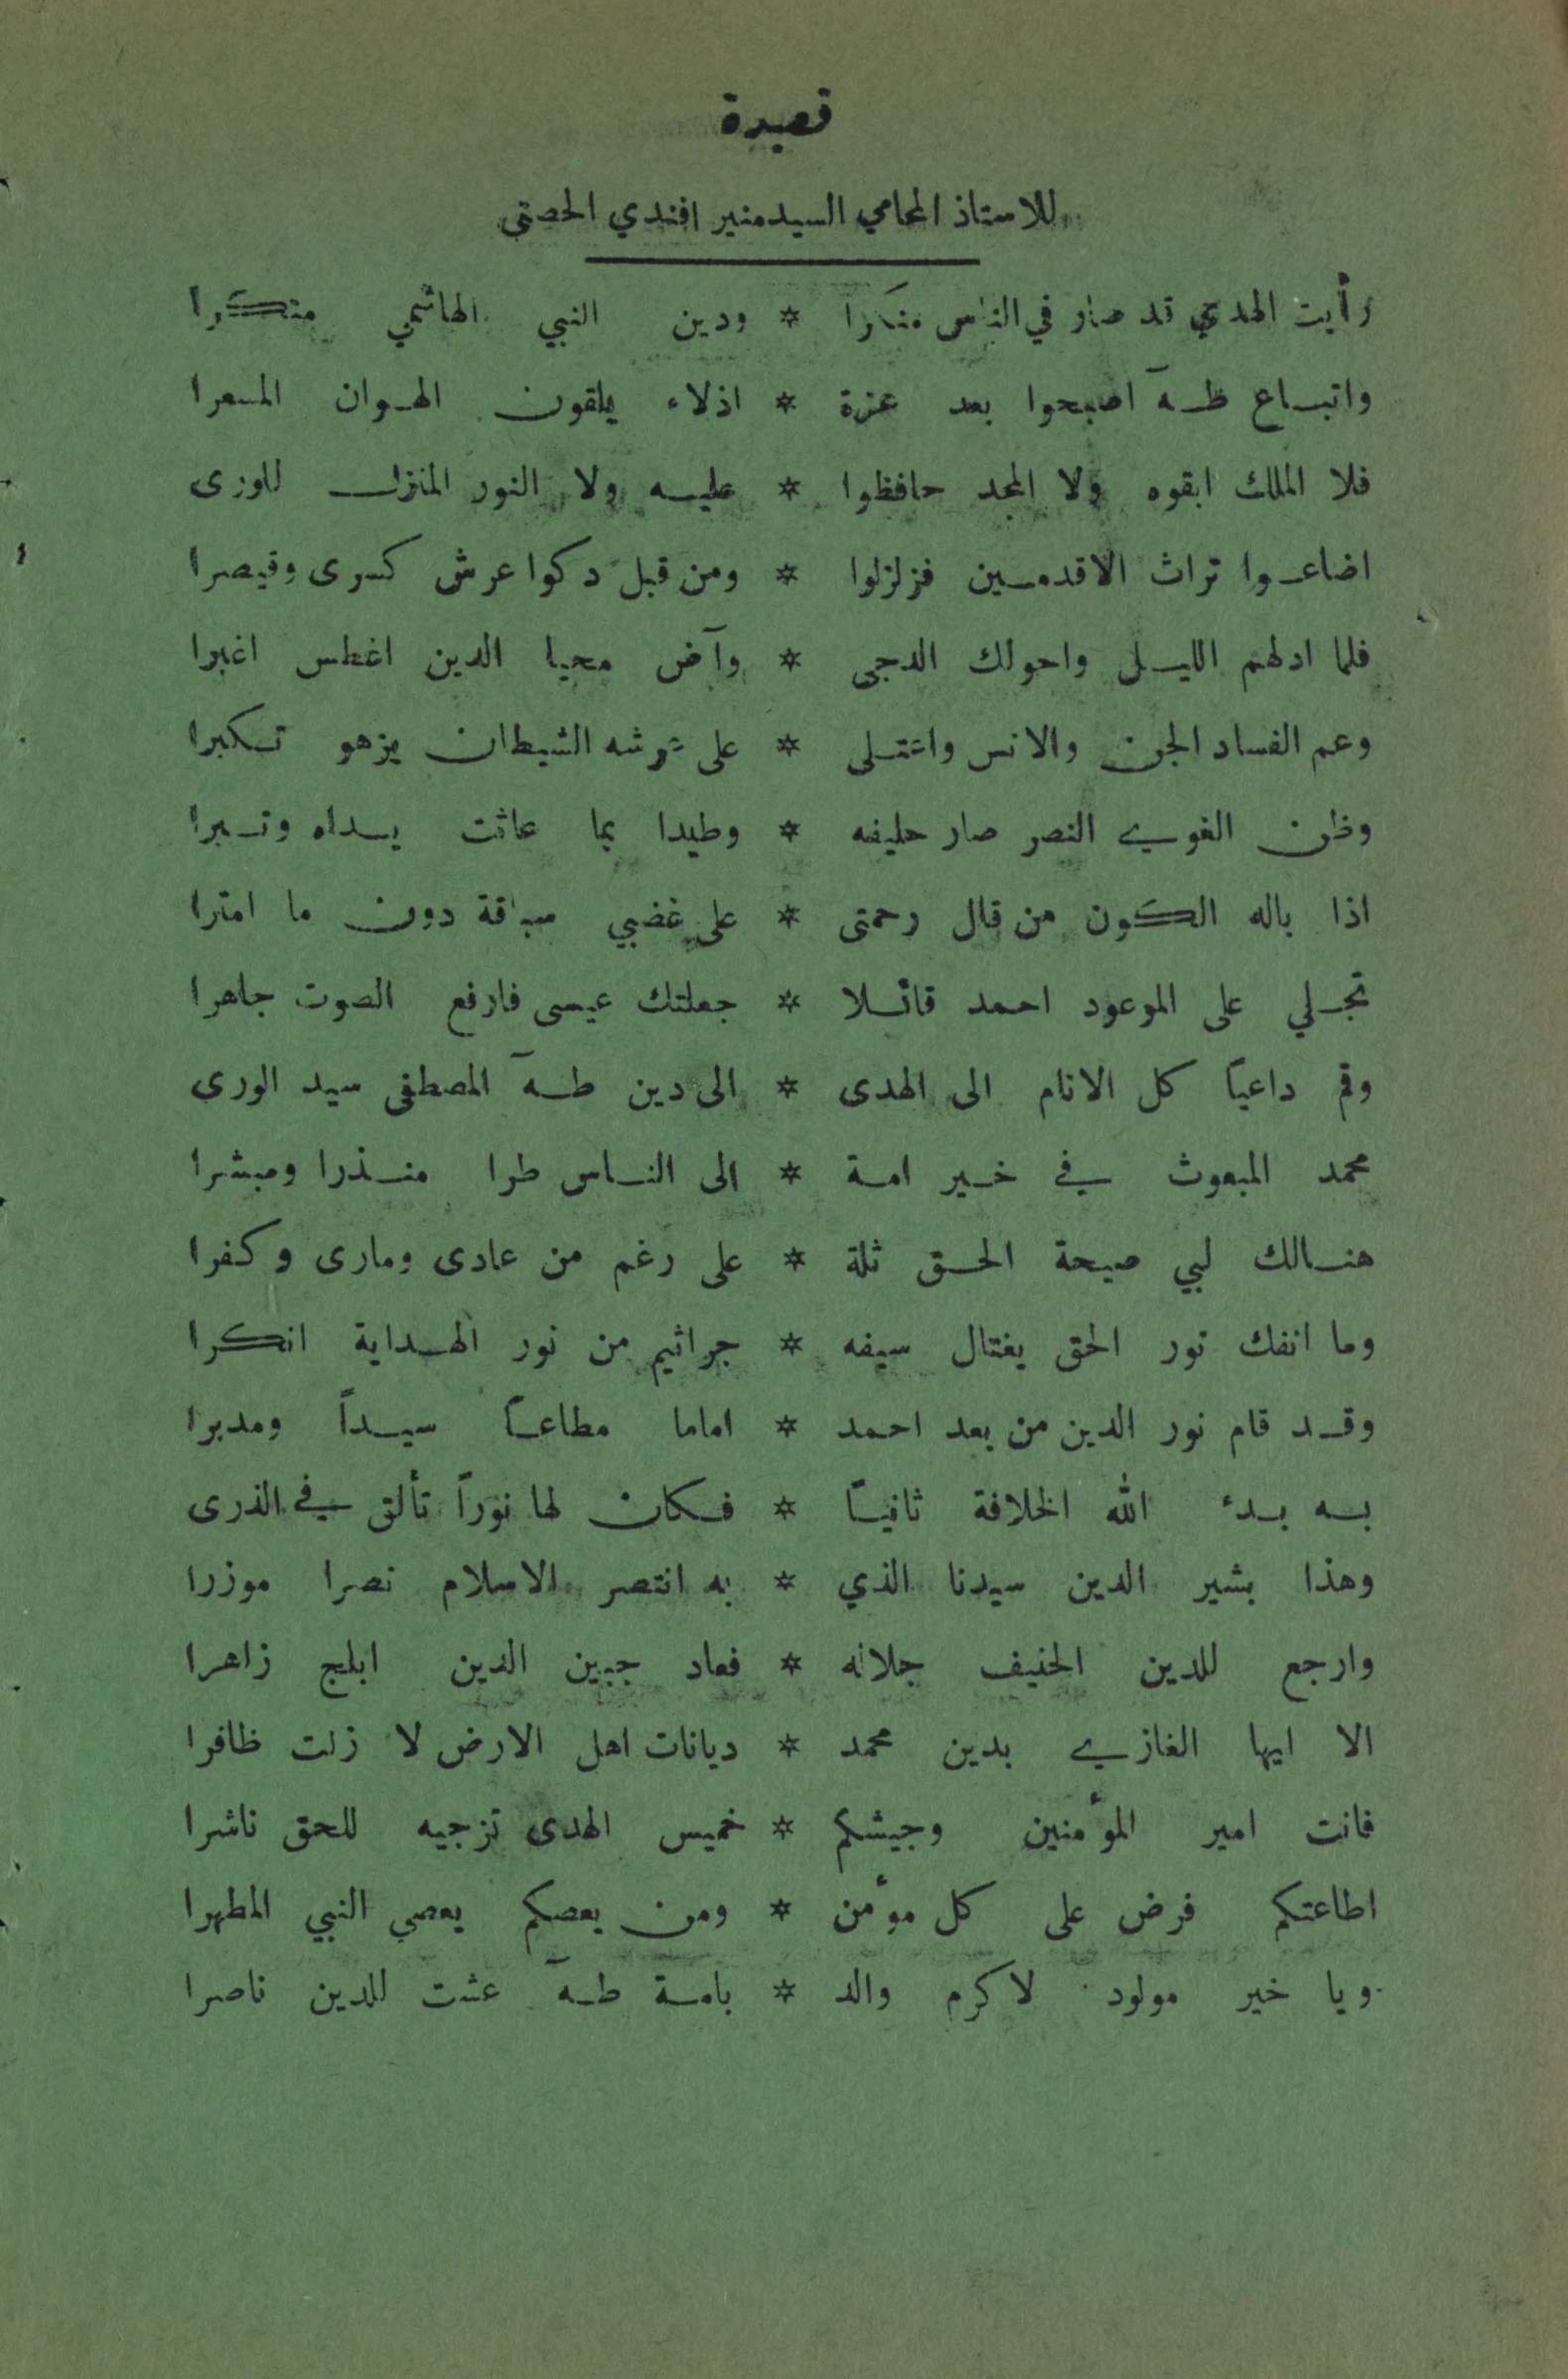 قصيدة
للاستاذ المحامي السيد منير افندي الحصني
رأيت الهدى قد صار في الناس منكرا * ودين النبي الهاشمي متكرا
واتباع طه اصبحوا بعد عزة * اذلاء يلقون الهوان المسعرا
فلا الملك ابقوه ولا المجد حافظوا * عليه ولا النور المنزل للورى
اضاعوا تراث الاقدمين فزلزلوا * ومن قبل دكوا عرش كسرى وقيصرا
فلما ادلهم الليل واحولك الدجى * وآض محيا الدين اغطس اغبرا
وعم الفساد الجن والانس واعتلى * على عرشه الشيطان يزهو تكبرا
وظن الغوي النصر صار حليفه * وطيدا بما عاثت يداه وتبرا
اذا باله الكون من قال رحمتي * على غضبي سباقة دون ما امترا
تجلي على الموعود احمد قائلا * جعلتك عيسى فارفع الصوت جاهرا
وقم داعياً كل الانام الى الهدى * الى دين طه المصطفى سيد الورى
محمد المبعوث في خير امة * الى الناس طرا منذرا ومبشرا
هنالك لبي صيحة الحق ثلة * على رغم من عادى ومارى وكفرا
وما انفك نور الحق يغتال سيفه * جراثيم من نور الهداية انكرا
وقد قام نور الدين من بعد احمد * اماما مطاعاً سيداً ومدبرا
به بدء الله الخلافة ثانياً * فكان لها نوراً تألق في الذرى
وهذا بشير الدين سيدنا الذي * به انتصر الاسلام نصرا موزرا
وارجع للدين الحنيف جلاله * فعاد جبين الدين ابلج زاهرا
الا ايها الغازي بدين محمد * ديانات اهل الارض لا زلت ظافرا
فانت امير المؤمنين وجيشكم * خميس الهدى تزجيه للحق ناشرا
اطاعتكم فرض على كل مؤمن * ومن يعصكم يعصي النبي المطهرا
ويا خير مولود لاكرم والد * بامة طه عشت للدين ناصرا